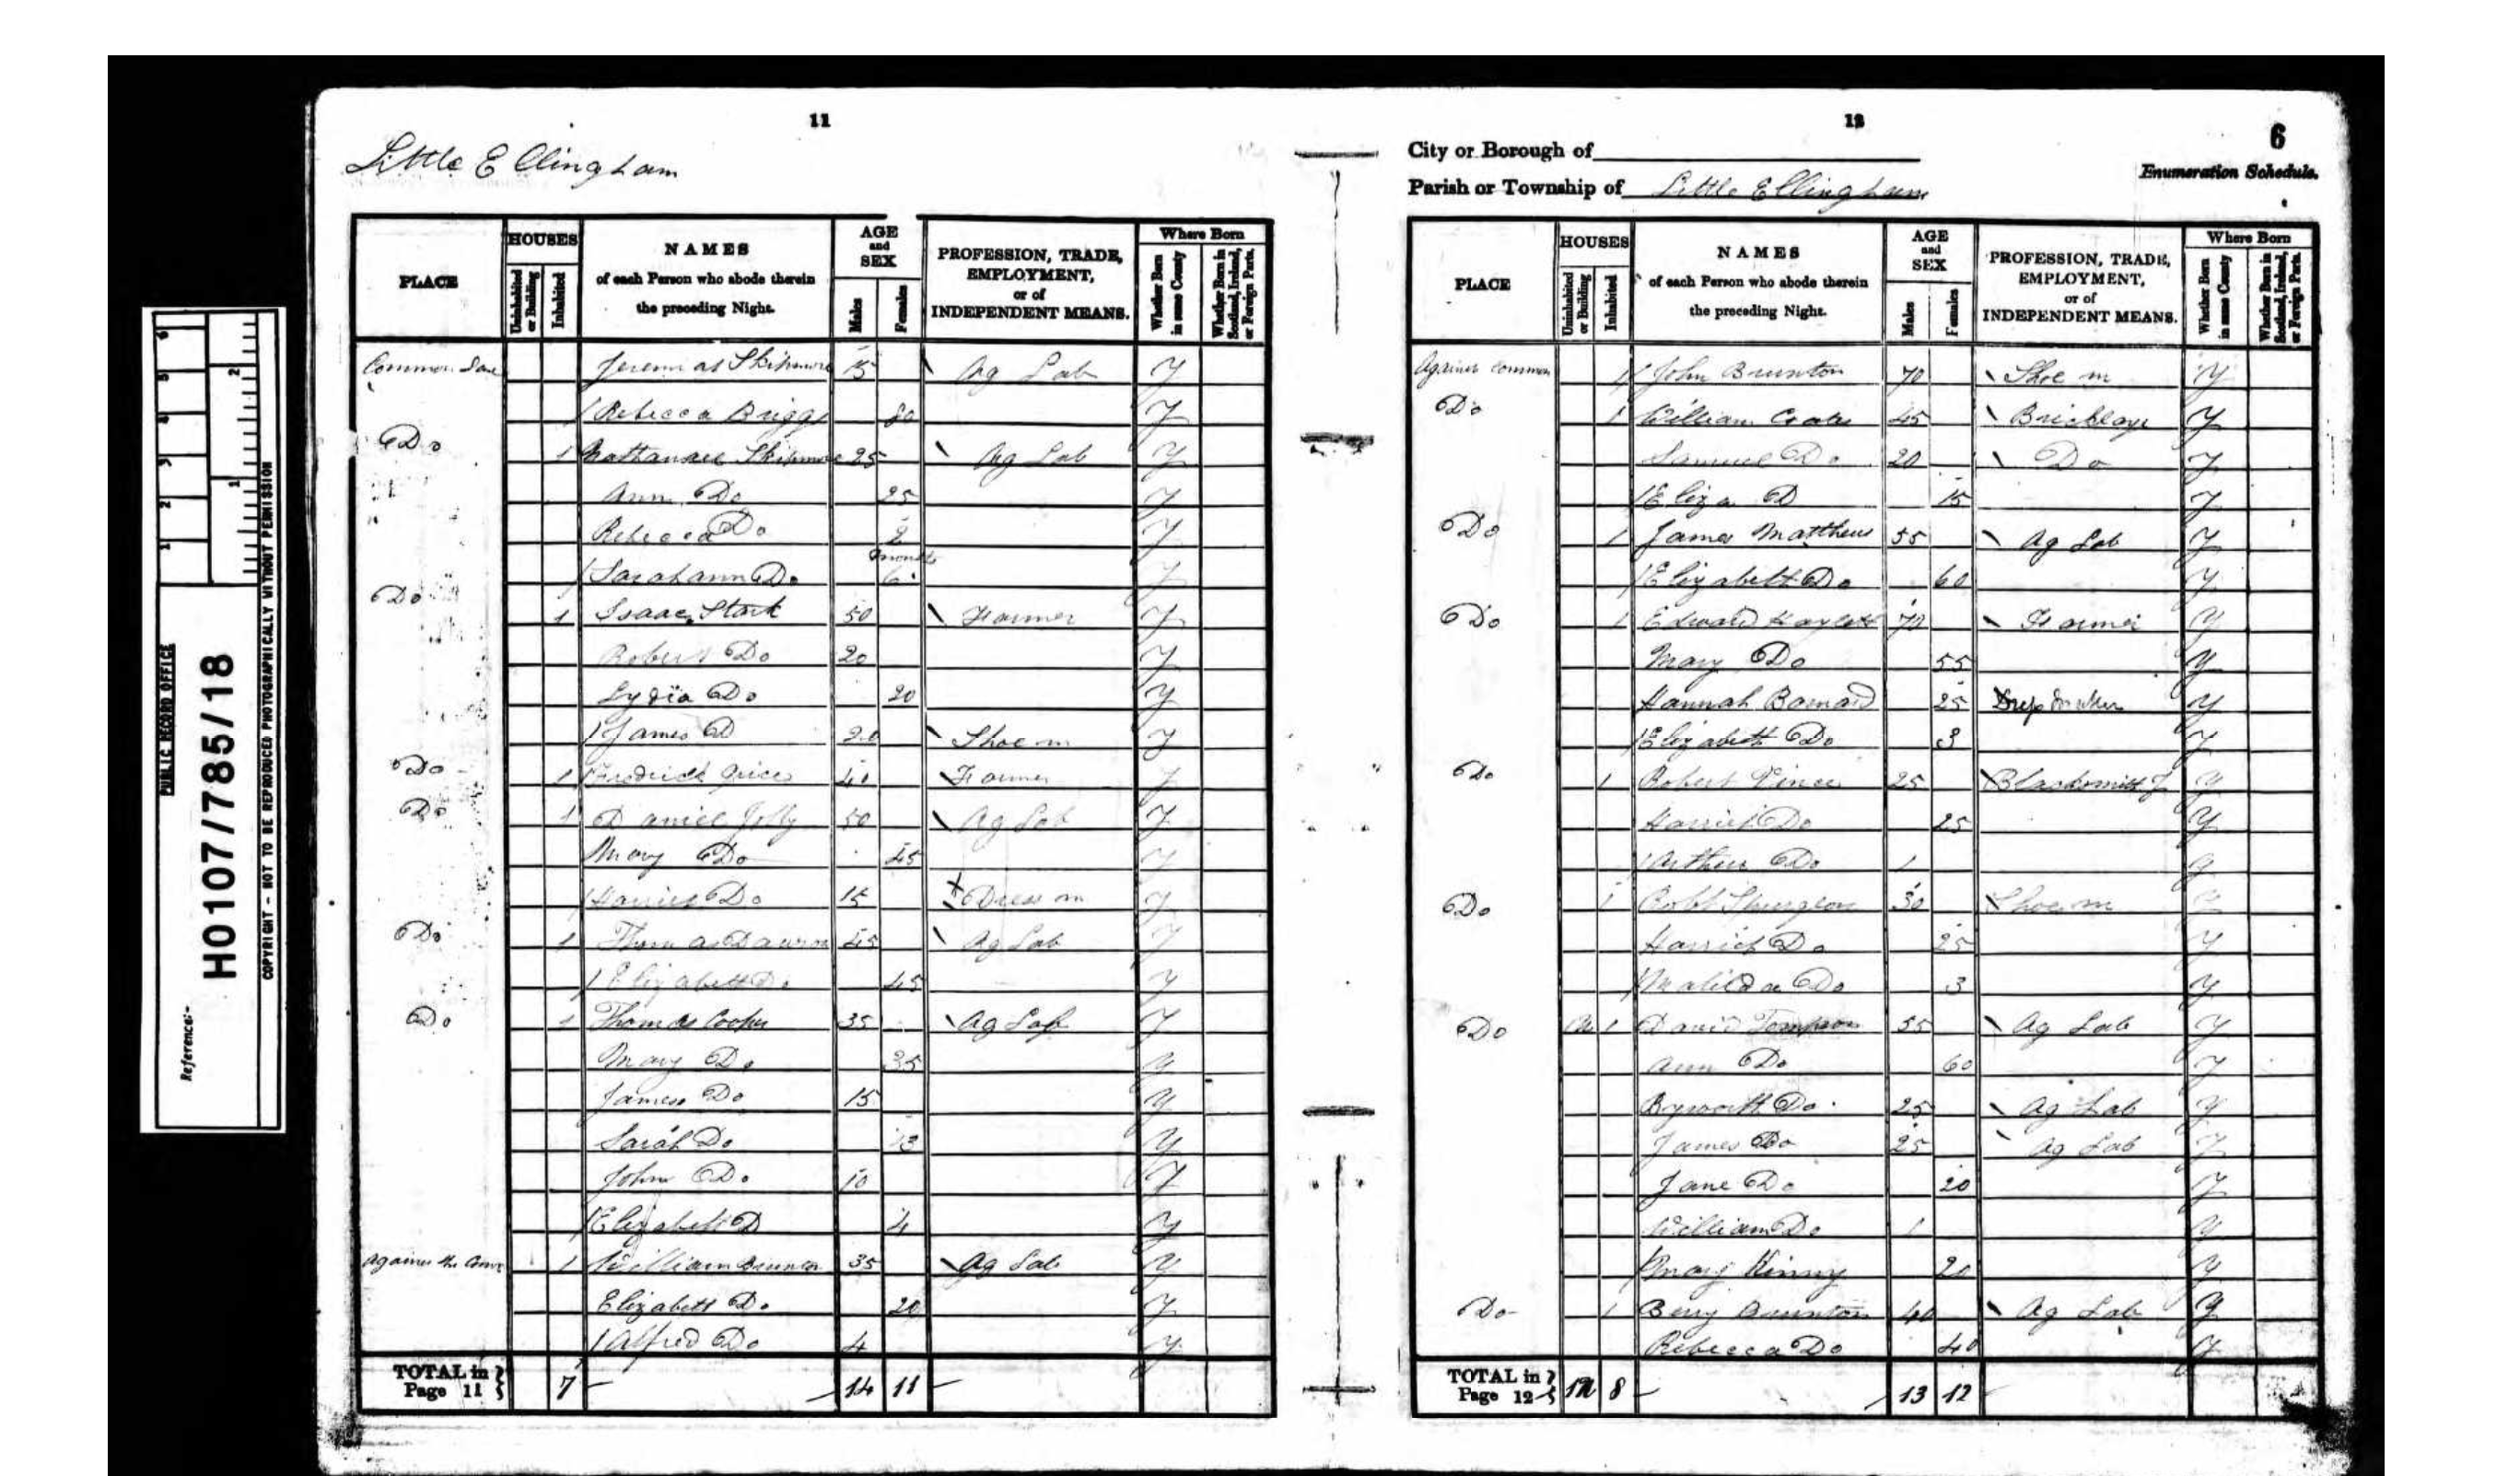 PUBLIC RECORD OFFICE
Reference:- HO107/785/18
COPYRIGHT - NOT TO BE REPRODUCED PHOTOGRAPHICALLY WITHOUT PERMISSION
11
Little Ellingham
PLACE
HOUSES
Uninhabited or Building
Inhabited
NAMES
of each Person who abode therein
the preceding Night.
AGE and SEX
Males
Females
PROFESSION, TRADE, EMPLOYMENT, or of INDEPENDENT MEANS.
Where Born
Whether Born in same County
Whether Born in Scotland, Ireland, or Foreign Parts.
Common Lane Skipmore 15 Ag Lab Y
Rebecca Briggs 80 Y
Do 1 Skipmore 25 Ag Lab Y
Ann Do 25 Y
Rebecca Do 2 Y
months
Sarahann Do 6 Y
Do 1 Isaac Stark 50 Farmer Y
Robert Do 20 Y
Lydia Do 20 Y
James D 20 Shoe m Y
Do 1 Fredrick Grices 40 Farmer Y
Do 1 Daniel Jolly 50 Ag Lab Y
Mary Do 45 Y
Harriet Do 15 Dress m Y
Do 1 Thomas Dawson 45 Ag Lab Y
Elizabeth Do 45 Y
Do 1 Thomas Cooper 35 Ag Lab Y
Mary Do 35 Y
James Do 15 Y
Sarah Do 13 Y
John Do 10 Y
Elizabeth D 4 Y
Against the 1 William 35 Ag Lab Y
Elizabeth Do 20 Y
Alfred Do 4 Y
TOTAL in Page 11 7 14 11
12
6
City or Borough of
Enumeration Schedule.
Parish or Township of Little Ellingham
PLACE
HOUSES
Uninhabited or Building
Inhabited
NAMES
of each Person who abode therein
the preceding Night.
AGE and SEX
Males
Females
PROFESSION, TRADE, EMPLOYMENT, or of INDEPENDENT MEANS.
Where Born
Whether Born in same County
Whether Born in Scotland, Ireland, or Foreign Parts.
Against Common 1 John Brunton 70 Shoe m Y
Do 1 William 45 Y
Samuel Do 20 Do Y
Eliza D 15 Y
Do 1 James Matthews 55 Ag Lab Y
Elizabeth Do 60 Y
Do 1 Edward 70 Farmer Y
Mary Do 55 Y
Hannah Barnard 25 Y
Elizabeth Do 3 Y
Do 1 Robert Vince 25 Blacksmith J Y
Harriet Do 25 Y
Arthur Do 1 Y
Do 1 Robt Sturgeon 30 Shoe m Y
Harriet Do 25 Y
Matilda Do 3 Y
Do 1 David Tompson 55 Ag Lab Y
Ann Do 60 Y
Do 25 Ag Lab Y
James Do 25 Ag Lab Y
Jane Do 20 Y
William Do 1 Y
Mary Kinny 20 Y
Do 1 Brunton 40 Ag Lab Y
Rebecca Do 40 Y
TOTAL in Page 12 8 13 12